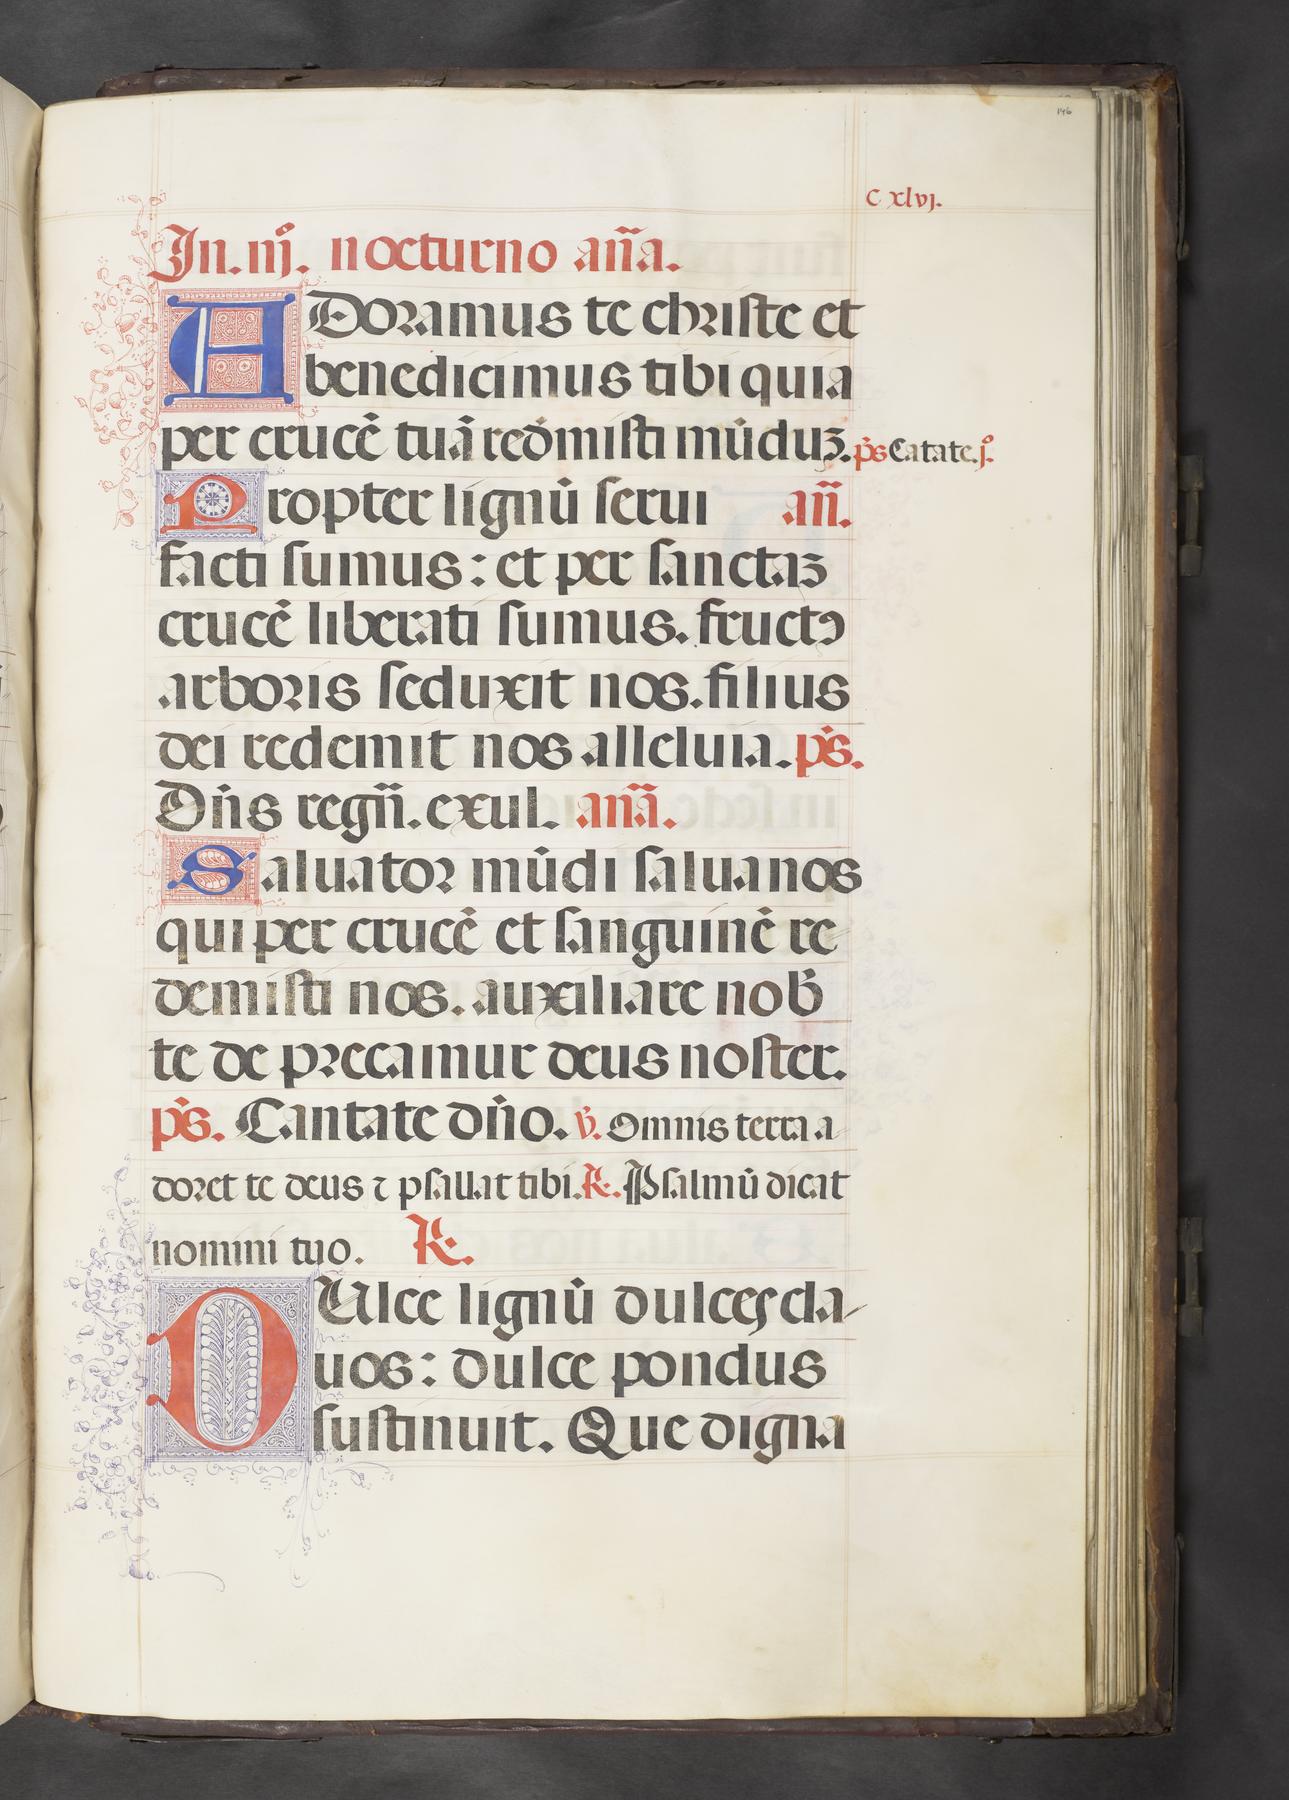 146
C xlvj.
In .iijº. nocturno añã.
ADoramus te christe et
benedicimus tibi quia
per crucẽ tuã redmisti mũduꝫ. p̃s Catate .jº.
Propter lignũ serui añ.
facti sumus : et per sanctaꝫ
crucẽ liberati sumus. fructꝰ
arboris seduxit nos. filius
dei redemit nos alleluia. p̃s.
Dñs regñ. exul. añã.
Saluator mũdi salua nos
qui per crucẽ et sanguinẽ re
demisti nos. auxiliare nob̃
te de precamur deus noster.
p̃s. Cantate dño. ℣. Omnis terra a
doret te deus ⁊ psallat tibi. ℟. Psalmũ dicat
nomini tuo. ℟.
DUlce lignũ dulces cla-
uos : dulce pondus
sustinuit. Que digna